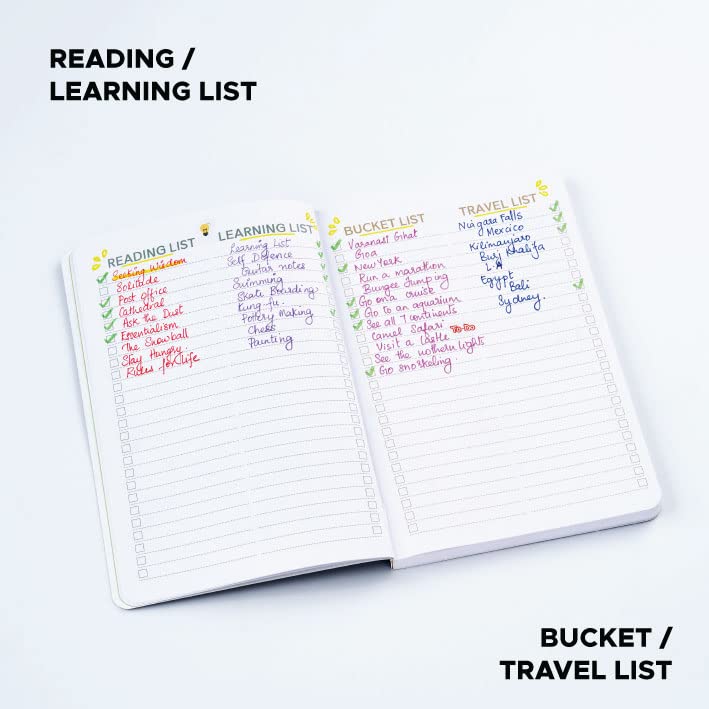 READING /
LEARNING LIST
READING LIST
Seeking Wisdom
Solitude
Post office
Cathedral
Ask the Dust
Essentialism
The Snowball
Stay Hungry.
Rules for life
LEARNING LIST
Learning List
Self Defence
Guitar notes
Swimming
Skate Boarding
Kung fu.
Pottery Making
Chess
Painting
BUCKET LIST
Varanasi Ghat
Goa
New York
Run a marathon
Bungee Jumping
Go on a cruise
Go to an aquarium
See all 7 continents
Camel Safari
Visit a Castle
See the nothern lights
Go snorkeling
TRAVEL LIST
Niagara Falls
Mexcico
Kilimanjaro
Burj Khalifa
L.A
Egypt
Bali
Sydney.
BUCKET /
TRAVEL LIST